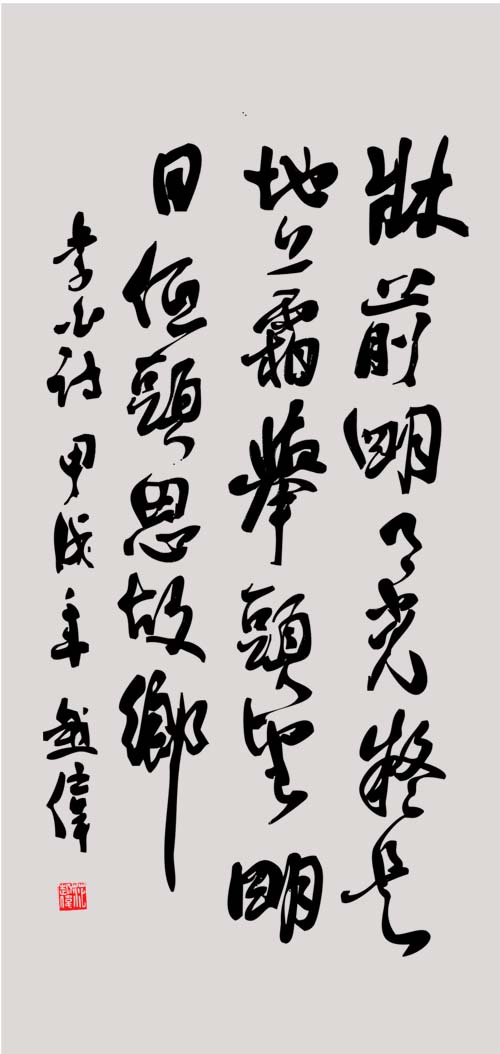 牀前明月光疑是
地上霜舉頭望明
月低頭思故鄉
李白詩甲戌年越偉